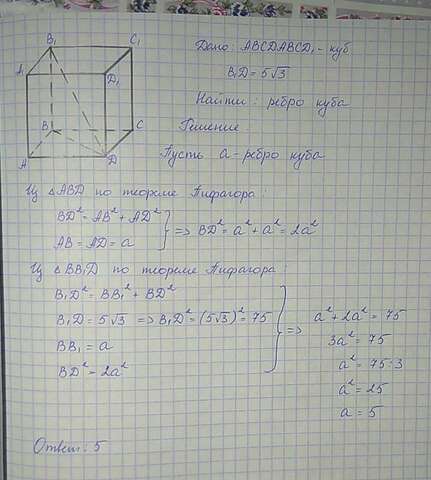 B₁ C₁
A₁ D₁
B C
A D
Дано: ABCDABCD₁ - куб
B₁D = 5√3
Найти: ребро куба
Решение:
Пусть a - ребро куба
Из △ABD по теореме Пифагора:
BD² = AB² + AD²
AB = AD = a
=> BD² = a² + a² = 2a²
Из △BB₁D по теореме Пифагора:
B₁D² = BB₁² + BD²
B₁D = 5√3 => B₁D² = (5√3)² = 75
BB₁ = a
BD² = 2a²
=> a² + 2a² = 75
3a² = 75
a² = 75:3
a² = 25
a = 5
Ответ: 5